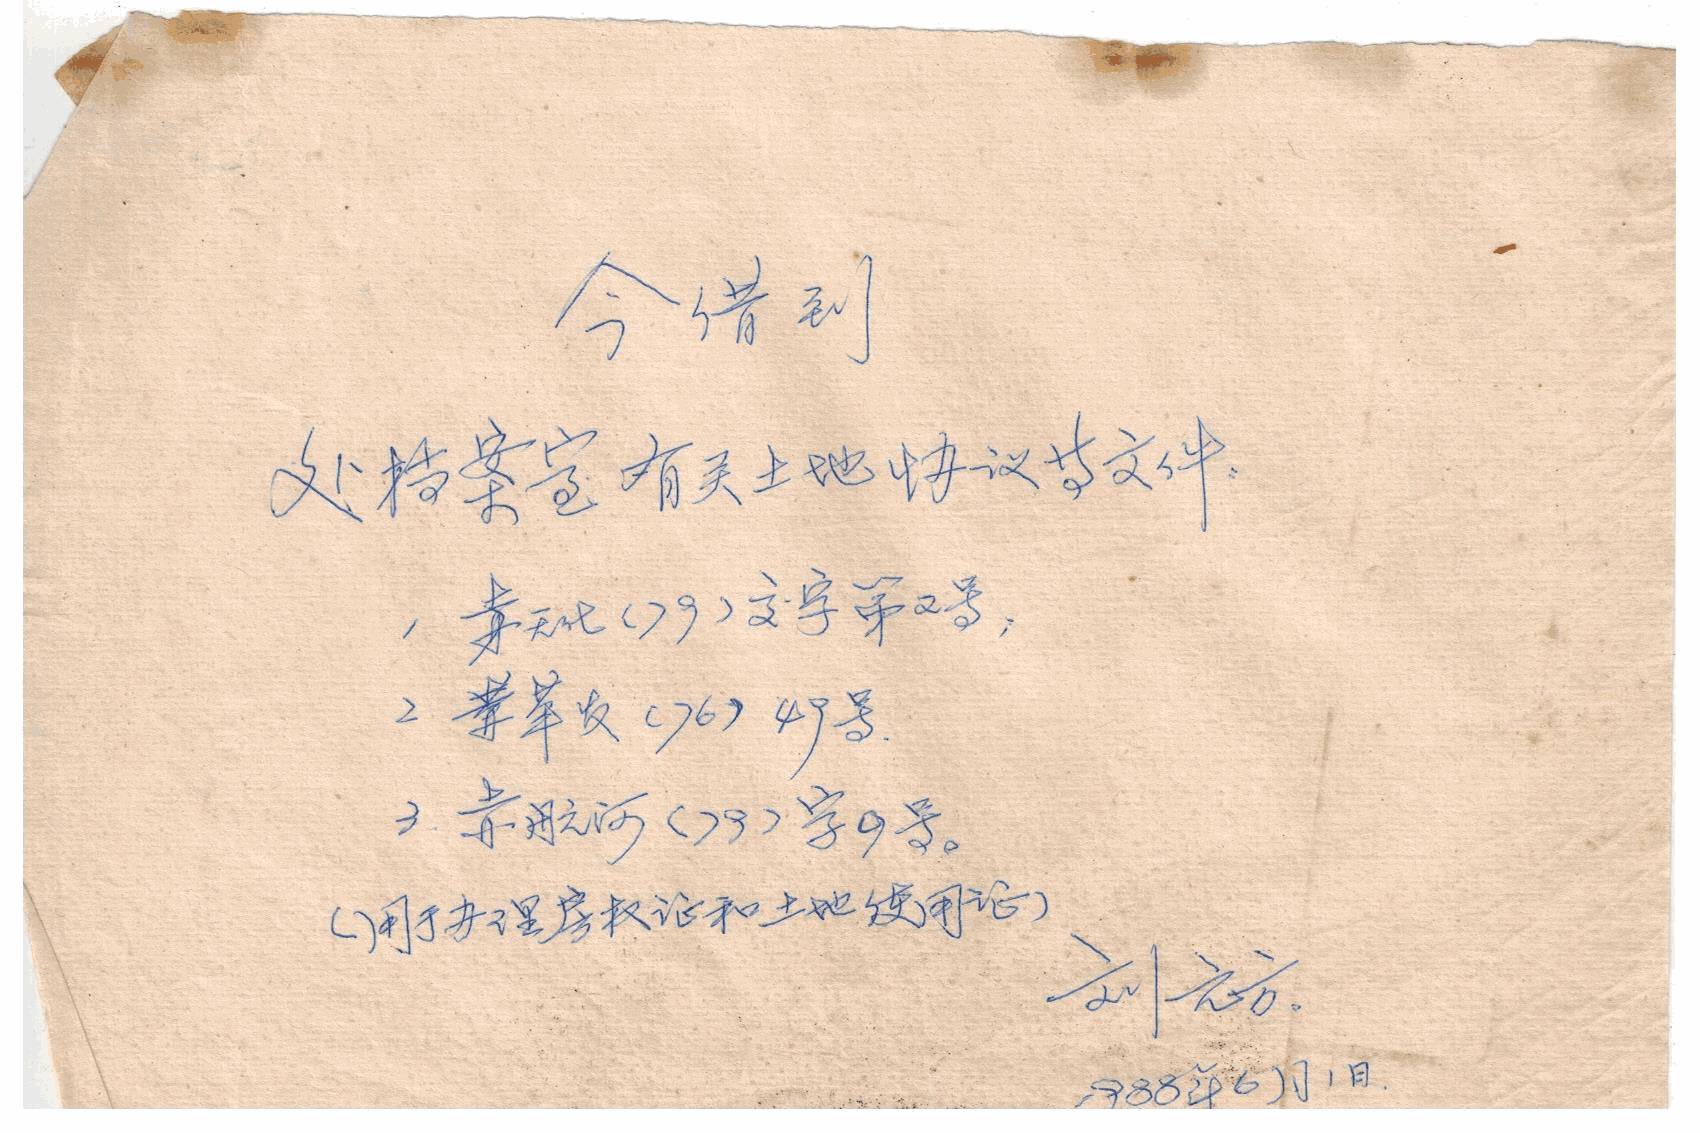 今借到
处档案室有关土地协议等文件：
1 赤天化（79）文字第2号；
2 革发（76）49号.
3. 赤航河（79）字9号。
（用于办理房权证和土地使用证）
刘元方.
1988年6月1日.